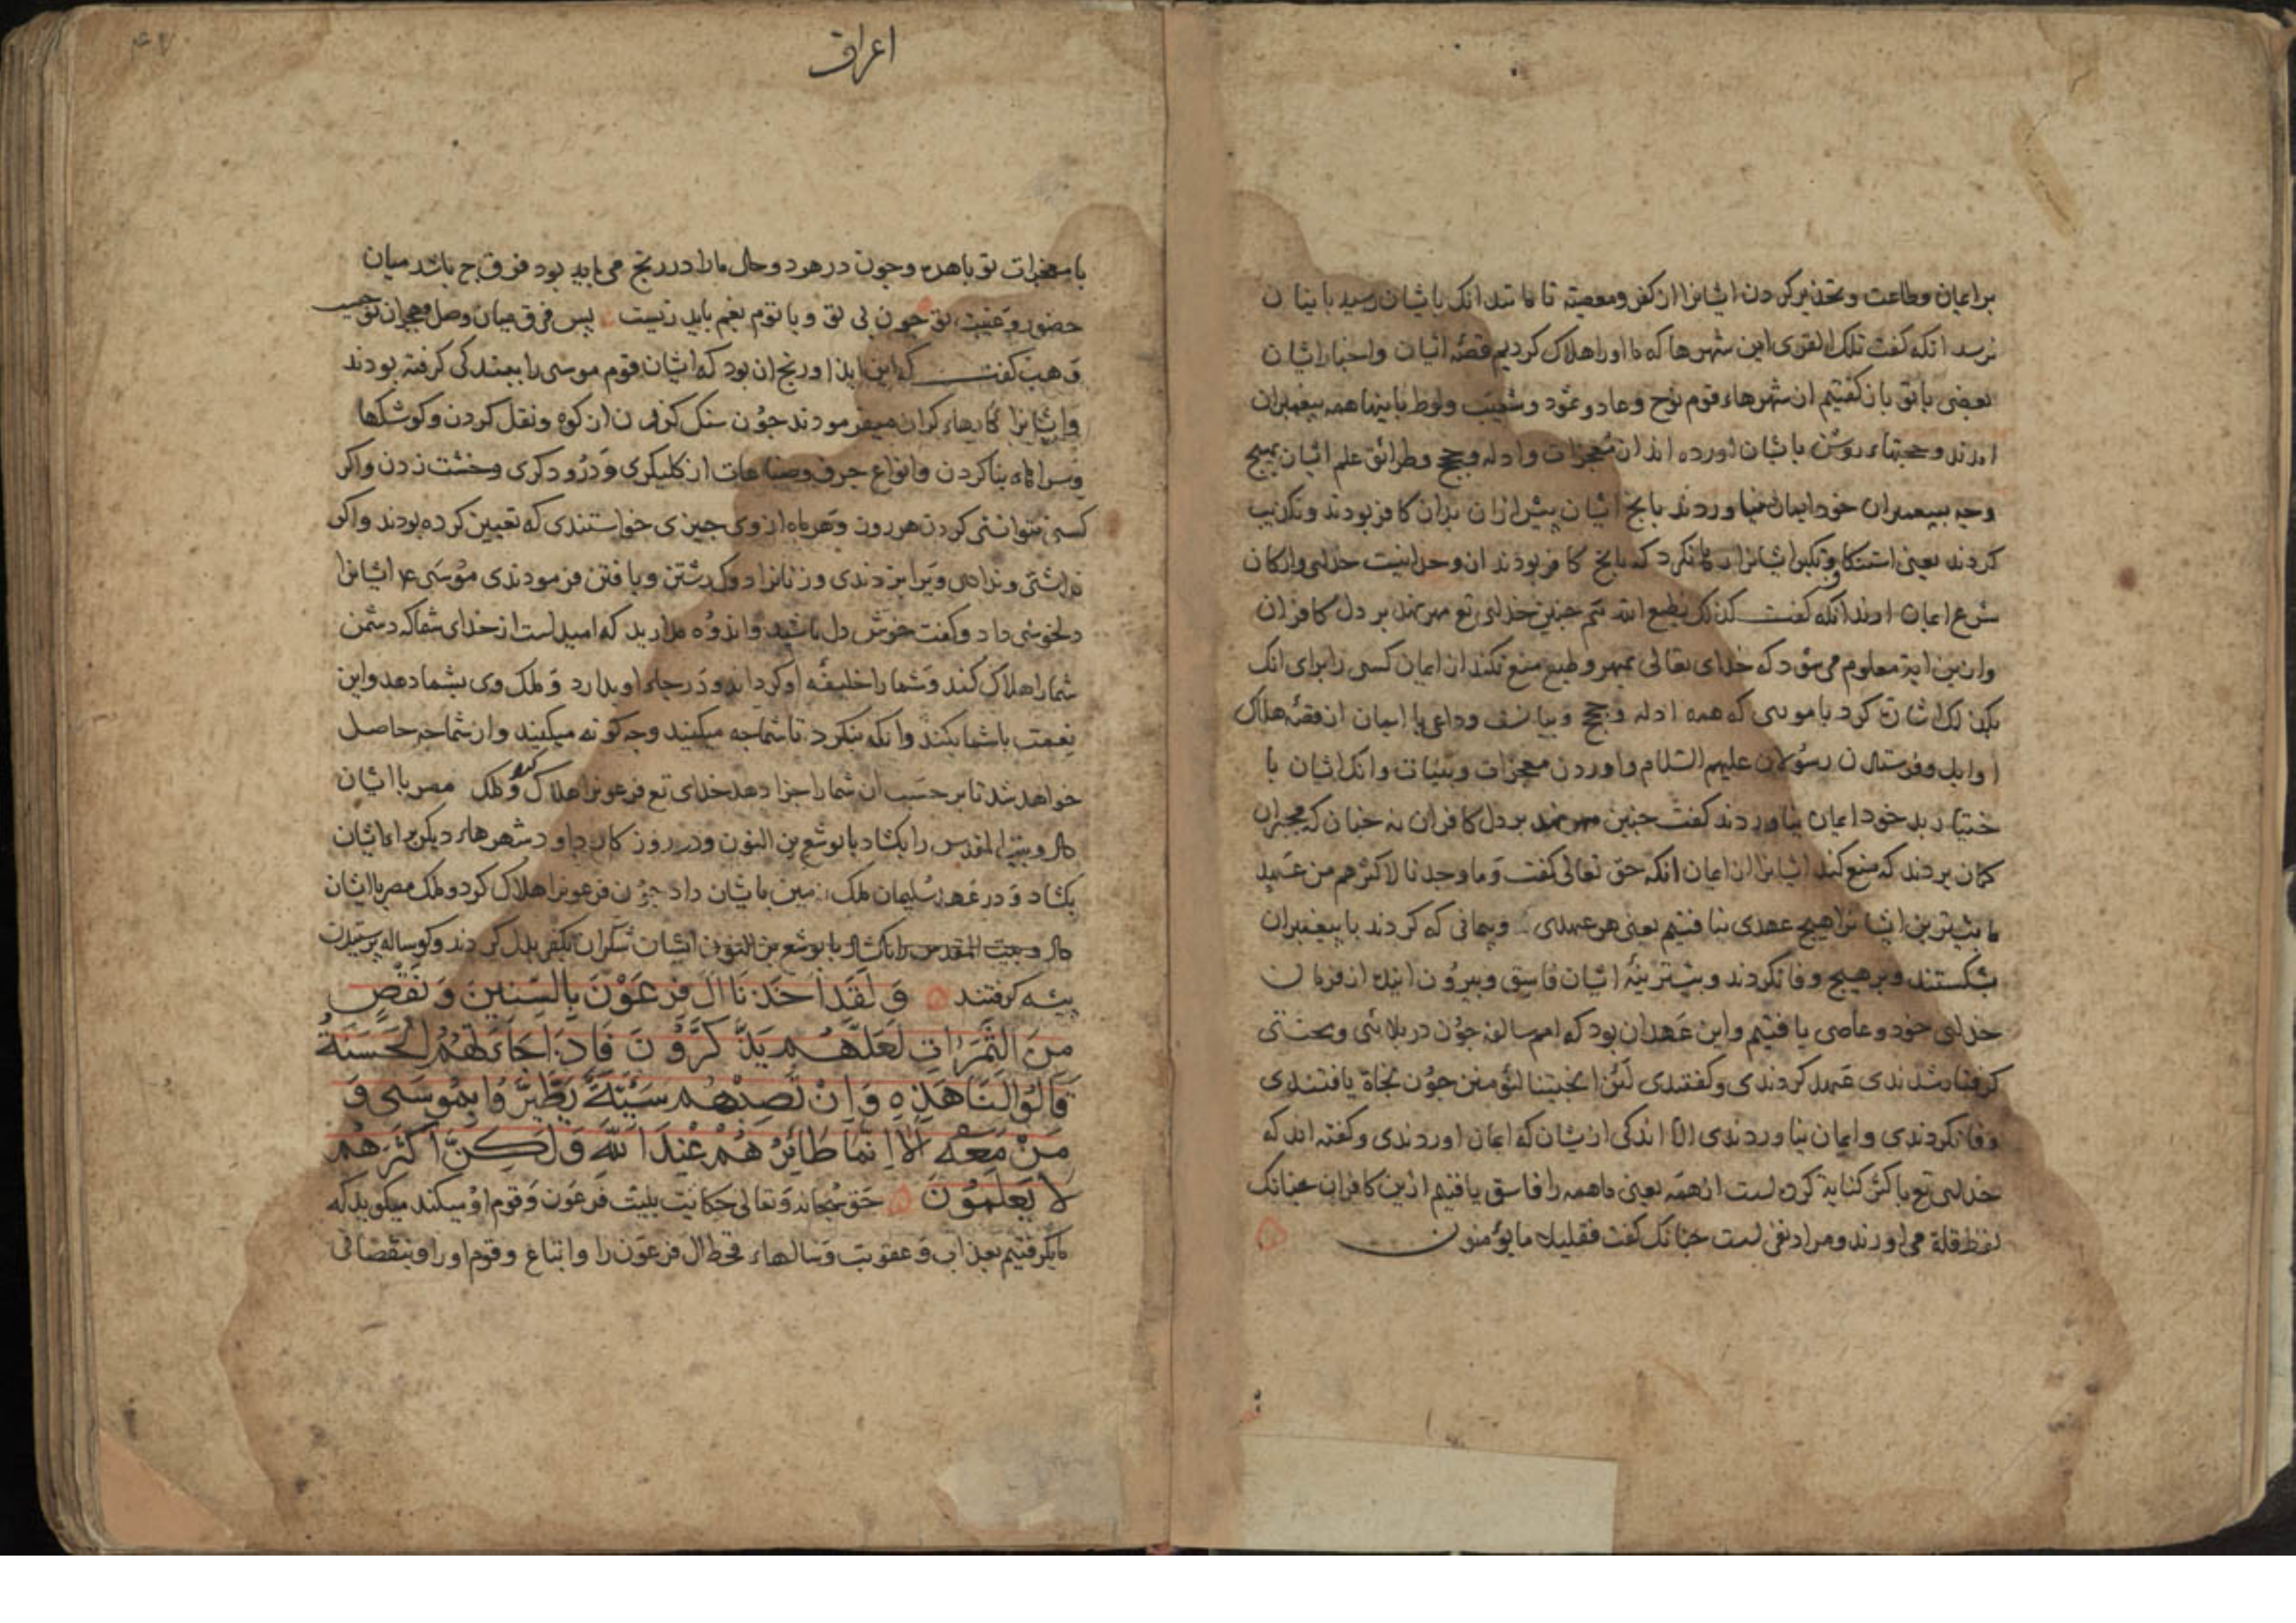 بر ایمان وطاعت وتحذیر کردن ایشانرا از کفر ومعصیة تا مانند انک بایشان رسید باینان
نرسد انکه کفت تلک القری این شهرها که ما اورا هلاک کردیم قصّه ایشان واخبار ایشان
بعضی با تو باز کفتیم ان شهرهاء قوم نوح وعاد وثمود وشعیب ولوط باینها همه پیغمبران
امدند وحجتهاء روشن بایشان اورده اند از معجزات وادله وحجج وطرائق علم ایشان بهیچ
وجه بپیغمبران خود ایمان نیاوردند بانج ایشان پیش ازان بدان کافر بودند وتکذیب
کردند یعنی استنکاف وتکبر ایشانرا رها نکرد که بانج کافر بودند از وحدانیت خدای وارکان
شرع ایمان ارند انکه کفت کذلک یطبع الله هم جنین خدای تع مهر نهد بر دل کافران
وازین ایة معلوم می شود که خدای تعالی بمهر وطبع منع نکند از ایمان کسی را برای انک
بکذلک اشارت کرد با موسی که همه ادله وحجج وبیانست وداعی با ایمان از قصّه هلاک
اوایل وفرستادن رسولان علیهم السّلام واوردن معجزات وبینات وانک ایشان با
ختیار بد خود ایمان نیاوردند کفت جنین مهر نهد بر دل کافران نه جنان که مجبران
کمان بردند که منع کند ایشانرا از ایمان انکه حق تعالی کفت وما وجدنا لاکثرهم من عهد
ما بیشترین ایشانرا هیچ عهدی نیافتیم یعنی هر عهدی وپیمانی که کردند با پیغمبران
بشکستند وبر هیچ وفا نکردند وبیشترینهٔ ایشان فاسق وبیرون اینده از فرمان
خدای خود وعاصی یافتیم واین عهد ان بود که امم سالفه جون در بلائی ومحنتی
کرفتار شدندی عهد کردندی وکفتندی لئن انجیتنا لنؤمنن جون نجاة یافتندی
وفا نکردندی وایمان نیاوردندی الا اندکی ازیشان که ایمان اوردندی وکفته اند که
خدای تع باکثر کنایة کرده است از همه یعنی ما همه را فاسق یافتیم ازین کافران همچنانک
لفظ قلة می اورند ومراد نفی است جنانک کفت فقلیلا ما یؤمنون
اعراف
با معجزات تو باهره وجون در هر دو حال ما را در رنج می باید بود فرق ج باشد میان
حضور وغیبت تو جون بی تو وبا توم بغم باید زیست پس فرق میان وصل وهجران تو جیست
وهب کفت که این ایذا ورنج ان بود که ایشان قوم موسی را ببندکی کرفته بودند
وایشانرا کارهاء کران میفرمودند جون سنک کندن از کوه ونقل کردن وکوشکها
وسراهاء بنا کردن وانواع حرف وصناعات از کلیکری ودرودکری وخشت زدن واکر
کسی نتوانستی کردن هر روز وهر ماه ازوی جیزی خواستندی که تعیین کرده بودند واکر
نداشتی وندادی ویرا بزدندی وزنانرا دوک رشتن وبافتن فرمودندی موسی ع ایشانرا
دلخوشی داد وکفت خوش دل باشید واندوه مدارید که امید است از خدای شما که دشمن
شما را هلاک کند وشما را خلیفهٔ او کرداند ودر جاء او بدارد وملک وی بشما دهد واین
نعمت با شما بکند وانکه بنکرد تا شما جه میکنید وجه کونه میکنید واز شما جه حاصل
خواهد شد تا بر حسب ان شما را جزا دهد خدای تع فرعونرا هلاک کرد وملک مصر با ایشان
داد وبیت المقدس را بکشاد با یوشع بن النون ودر روزکار داود شهرهاء دیکر براء ایشان
بکشاد ودر عهد سلیمان ملک زمین بایشان داد جون فرعونرا هلاک کرد وملک مصر با ایشان
داد وبیت المقدس را بکشاد با یوشع بن النون ایشان شکر ان بکفر بدل کردند وکوساله پرستیدن
پیشه کرفتند وَلَقَدْ اَخَذْنَا الَ فِرْعَوْنَ بِالسِّنِینَ وَنَقْصٍ
مِنَ الثَّمَرَاتِ لَعَلَّهُمْ یَذَّکَّرُونَ فَاِذَا جَاءَتْهُمُ الْحَسَنَةُ
قَالُوا لَنَا هَذِهِ وَاِنْ تُصِبْهُمْ سَیِّئَةٌ یَطَّیَّرُوا بِمُوسَی وَ
مَنْ مَعَهُ اَلَا اِنَّمَا طَائِرُهُمْ عِنْدَ اللَّهِ وَلَکِنَّ اَکْثَرَهُمْ
لَا یَعْلَمُونَ حق سبحانه وتعالی حکایت بلیت فرعون وقوم او میکند میکوید که
ما بکرفتیم بعذاب وعقوبت وسالهاء قحط ال فرعون را واتباع وقوم اورا وبنقصانی